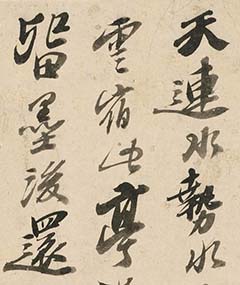 天連水勢水
雲宿此亭
留墨後還